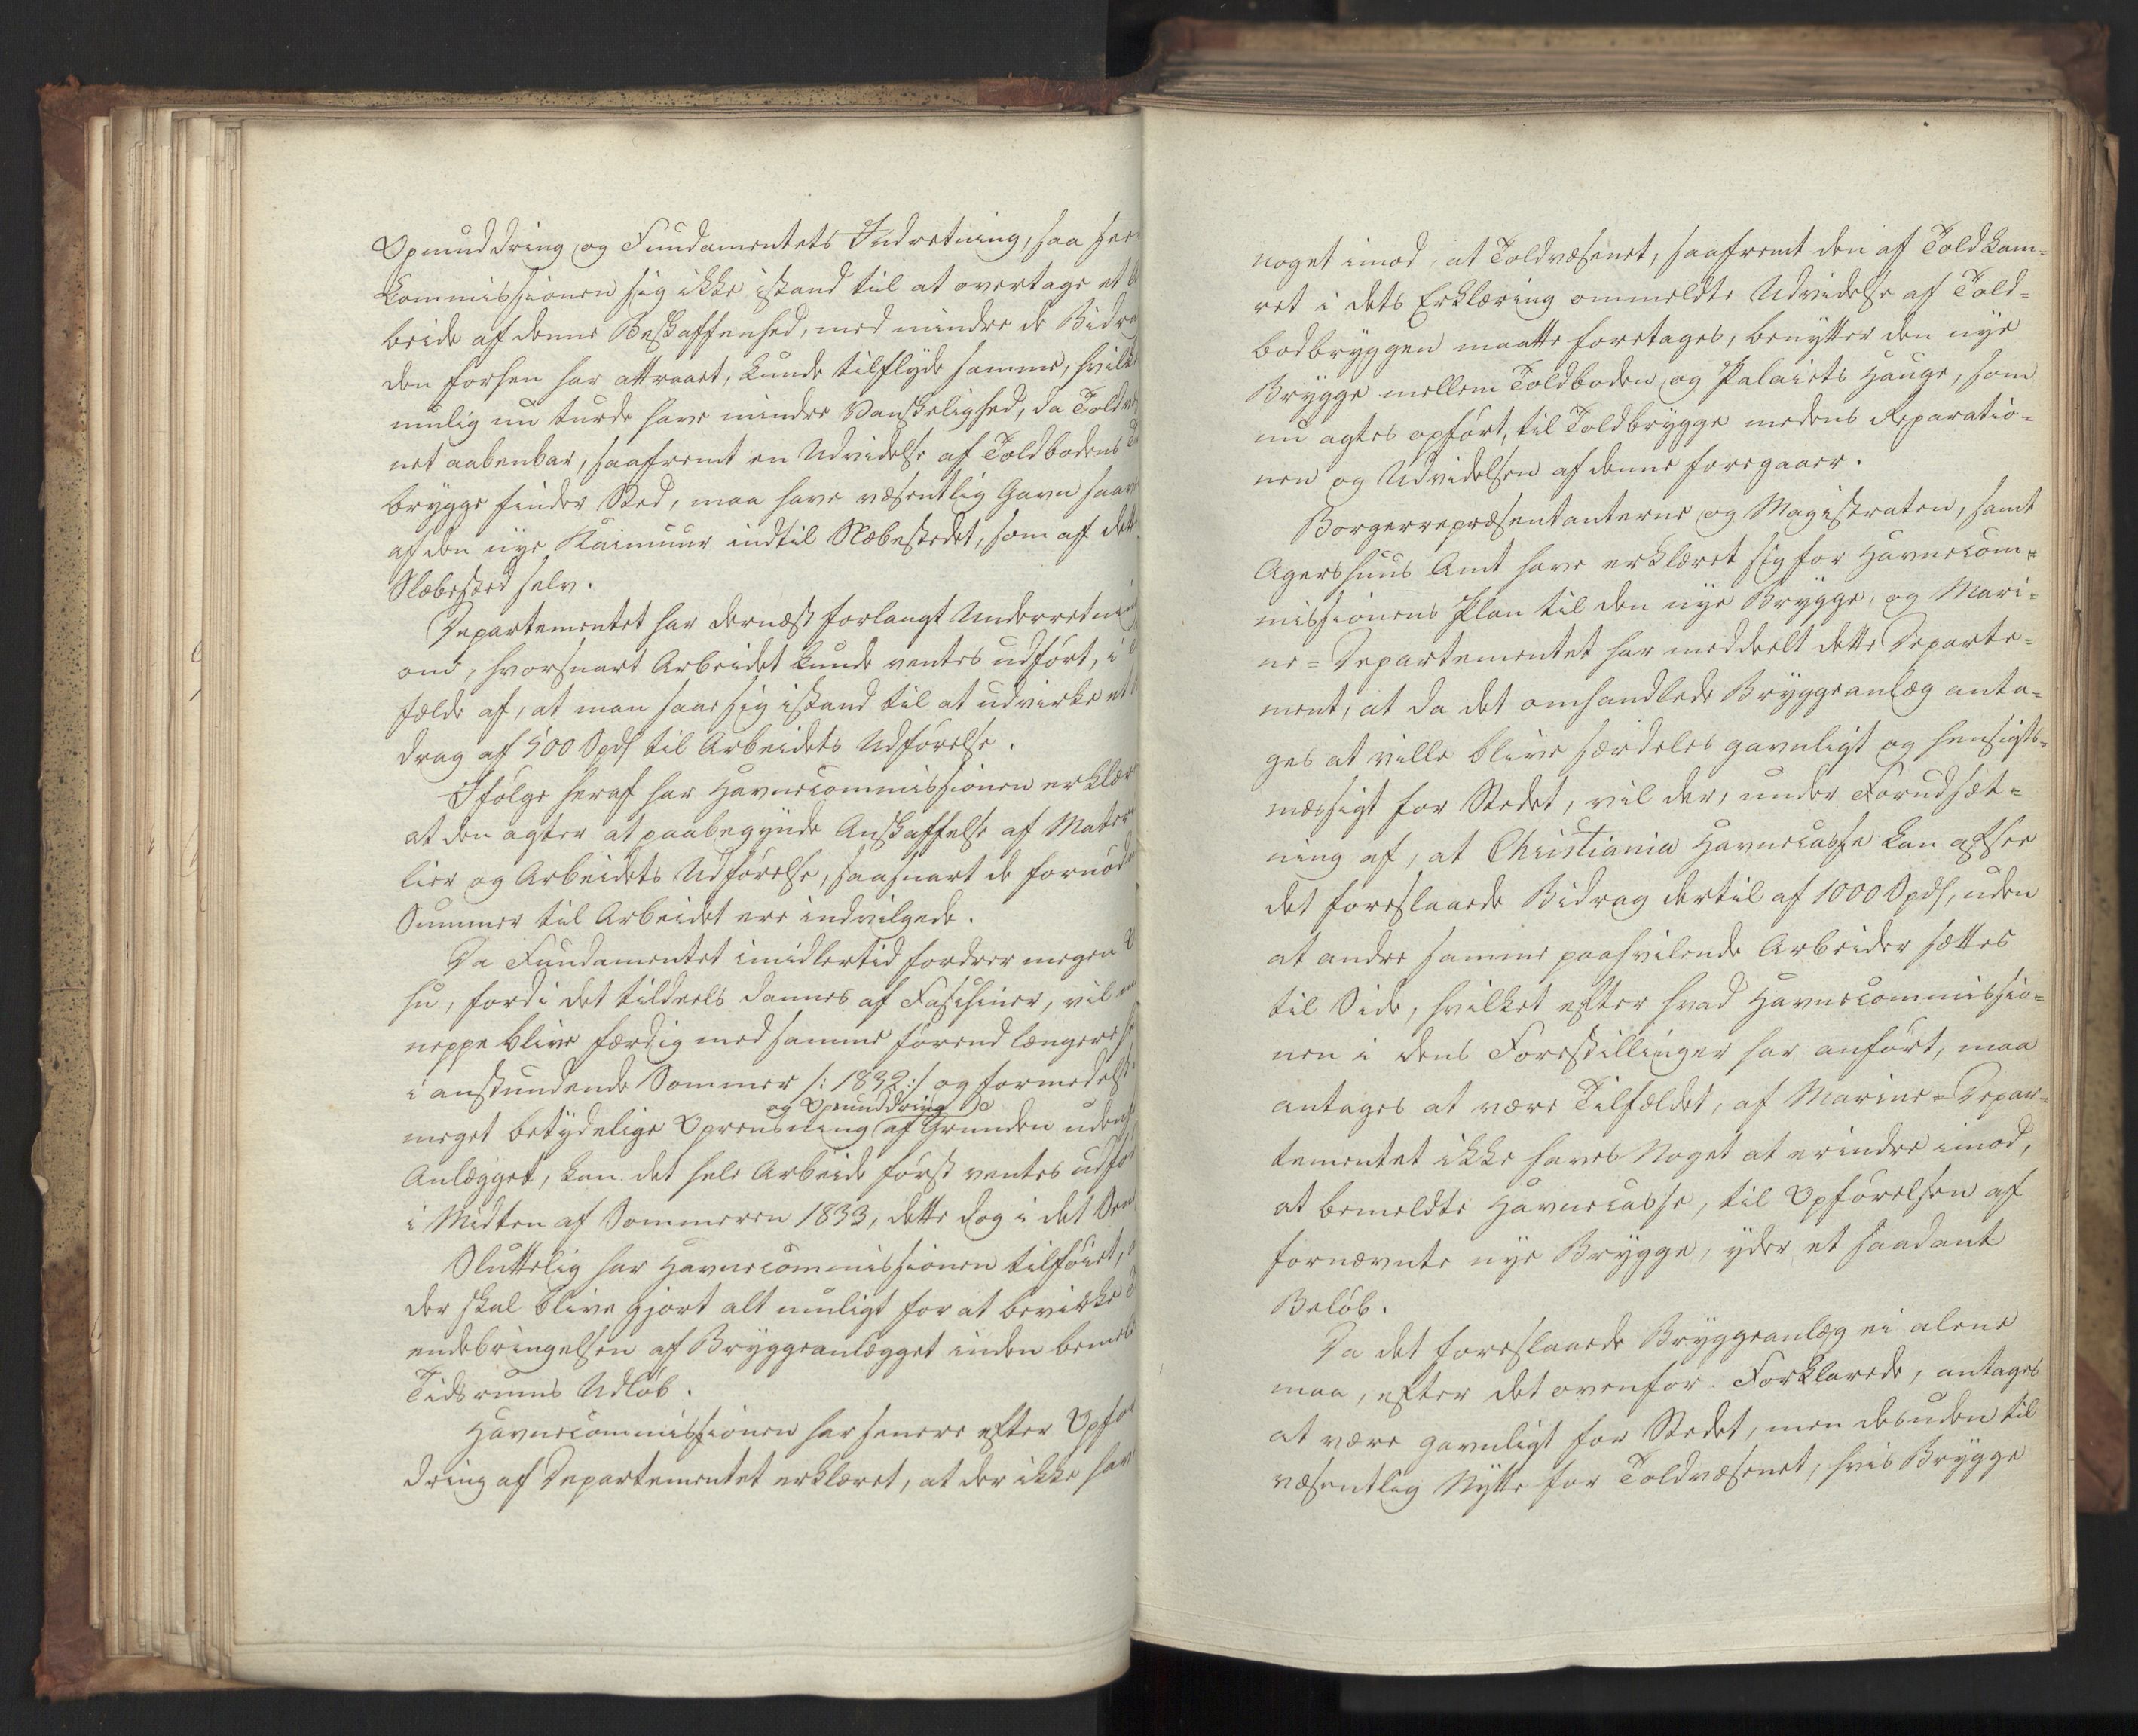 Opmuddring og Fundamentets Indretning, saa seer
Commissionen sig ikke istand til at overtage et
beide af denne Beskaffenhed, med mindre de Bidra
den forhen har attraaet, kunde tilflyde samme, hvilk
mulig nu turde have mindre Vanskelighed, da Toldvæ
net aabenbar, saafremt en Udvidelse af Toldbodens
brygge finder Sted, maa have væsentlig Gavn saav
af den nye Kaimuur indtil Slæbestedet, som af dett
Slæbested selv.
Departementet har dernæst forlangt Underretnin
om, hvorsnart Arbeidet kunde ventes udført, i
fælde af, at man saae sig istand til at udvirke et
drag af 500 Spd til Arbeidets Udførelse.
Ifølge heraf har Havnecommissionen erklær
at den agter at paabegynde Anskaffelse af Mater
lier og Arbeidets Udførelse, saasnart de fornød
Summer til Arbeidet ere indvilgede.
Da Fundamentet imidlertid fordrer megen
su, fordi det tildeels dannes af Faschiner, vil
neppe blive færdig med samme førend længere
i anstundende Sommer /: 1832 :/ og formedelst
og Opmuddring
meget betydelige Oprensning af Grunden uden
Anlægget, kan det hele Arbeide først ventes udfø
i Midten af Sommeren 1833, dette dog i det
Sluttelig har Havnecommissionen tilføiet,
der skal blive gjort alt muligt for at bevirke
endebringelsen af Bryggeanlægget inden bemel
Tidsrums Udløb.
Havnecommissionen har senere efter Opfor
dring af Departementet erklæret, at der ikke hav
noget imod, at Toldvæsenet, saafremt den af Toldkam=
ret i dets Erklæring ommeldte Udvidelse af Told=
bodbryggen maatte foretages, benytter den nye
Brygge mellem Toldboden og Palaiets Hauge, som
nu agtes opført, til Toldbrygge medens Reparatio=
nen og Udvidelsen af denne foregaaer.
Borgerrepræsentanterne og Magistraten, samt
Agershuus Amt have erklæret sig for Havnecom=
missionens Plan til den nye Brygge, og Mari=
ne=Departementet har meddeelt dette Departe=
ment, at da det omhandlede Bryggeanlæg anta=
ges at ville blive særdeles gavnligt og hensigts=
mæssigt for Stedet, vil der, under Forudsæt=
ning af, at Christiania Havnecasse kan afsee
det foreslaaede Bidrag dertil af 1000 Spd, uden
at andre samme paahvilende Arbeider sættes
til Side, hvilket efter hvad Havnecommissio=
nen i dens Forestillinger har anført, maa
antages at være Tilfældet, af Marine=Depar=
tementet ikke haves Noget at erindre imod,
at bemeldte Havnecasse, til Opførelsen af
fornævnte nye Brygge, yder et saadant
Beløb.
Da det foreslaaede Bryggeanlæg ei alene
maa, efter det ovenfor Forklarede, antages
at være gavnligt for Stedet, men desuden til
væsentlig Nytte for Toldvæsenet, hvis Brygge